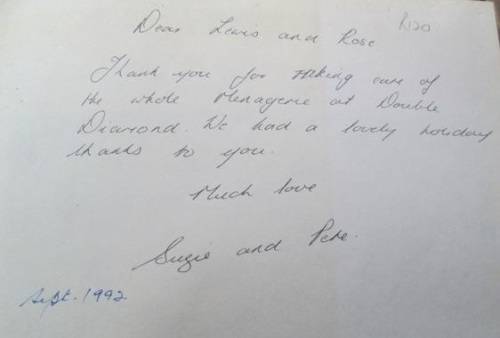 R120
Dear Lewis and Rose
Thank you for taking care of
the whole Menagerie at Double
Diamond. We had a lovely holiday
thanks to you.
Much love
Suzie and Pete.
Sept. 1992